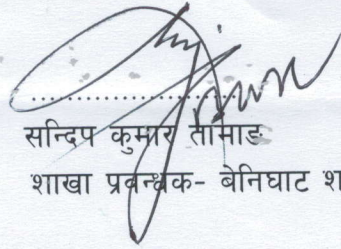 सन्दिप कुमार तामाङ
शाखा प्रबन्धक- बेनिघाट श